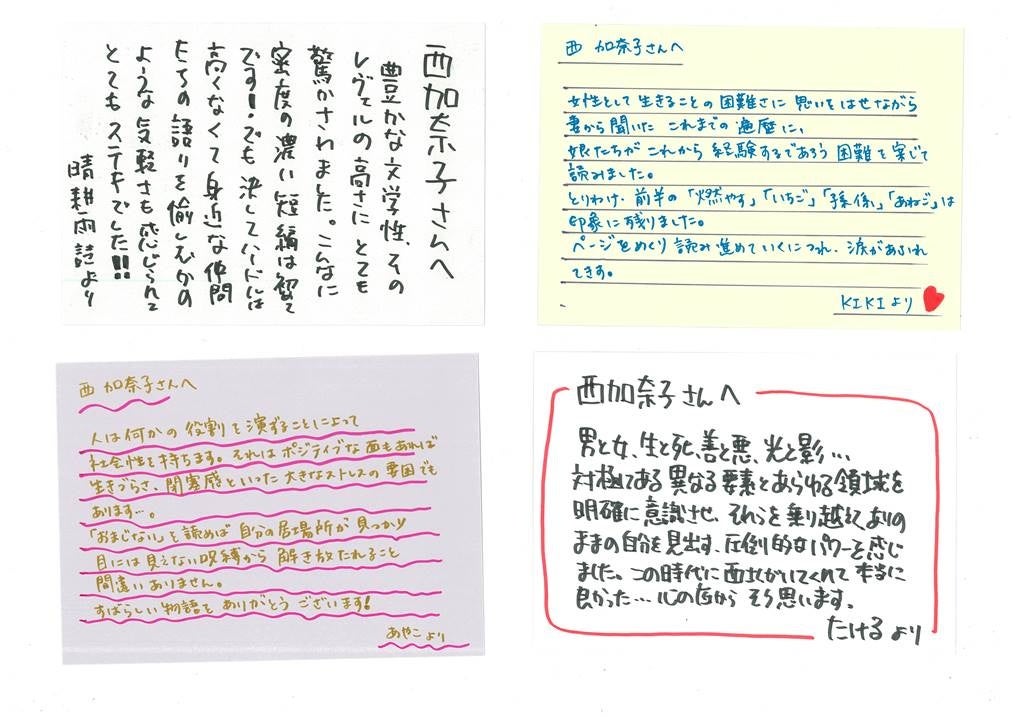 西加奈子さんへ
豊かな文学性、その
レヴェルの高さにとても
驚かされました。こんなに
密度の濃い短編は初めて
です！でも決してハードルは
高くなくて身近な仲間
たちの語りを愉しむかの
ような気軽さも感じられて
とてもステキでした!!
晴耕雨読より
西 加奈子さんへ
女性として生きることの困難さに思いをはせながら
妻から聞いた これまでの遍歴に、
娘たちがこれから経験するであろう困難を案じて
読みました。
とりわけ、前半の「燃やす」「いちご」「孫係」「あねご」は
印象に残りました。
ページをめくり読み進めていくにつれ、涙があふれ
てきす。
KIKIより
西 加奈子さんへ
人は何かの役割を演ずることによって
社会性を持ちます。それはポジティブな面もあれば
生きづらさ、閉塞感といった大きなストレスの要因でも
あります…。
「おまじない」を読めば自分の居場所が見つかり
目には見えない呪縛から解き放たれること
間違いありません。
すばらしい物語をありがとうございます!
あやこより
西加奈子さんへ
男と女、生と死、善と悪、光と影…
対極である異なる要素とあらゆる領域を
明確に意識させ、それらを乗り越え、ありの
ままの自分を見出す、圧倒的なパワーを感じ
ました。この時代に西さんがいてくれて本当に
良かった…心の底からそう思います。
たけるより